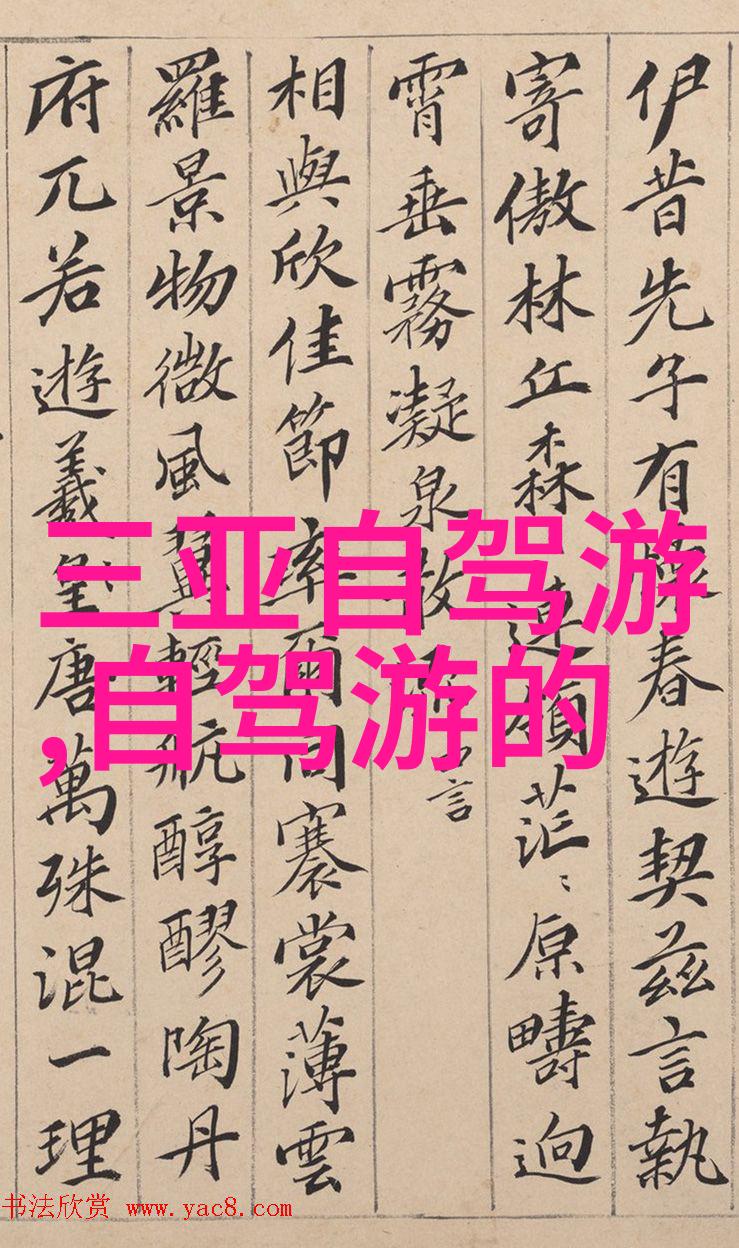 伊昔先子有春遊契茲言執
寄傲林丘森連領茫〻原疇迥
霄垂霧凝泉言
相與欣佳節率爾同褰裳薄雲
羅景物微風翼輕航醇醪陶丹
府兀若遊羲皇唐萬殊混一理
三亚自驾游
,自驾游的
书法欣赏 www.yac8.com